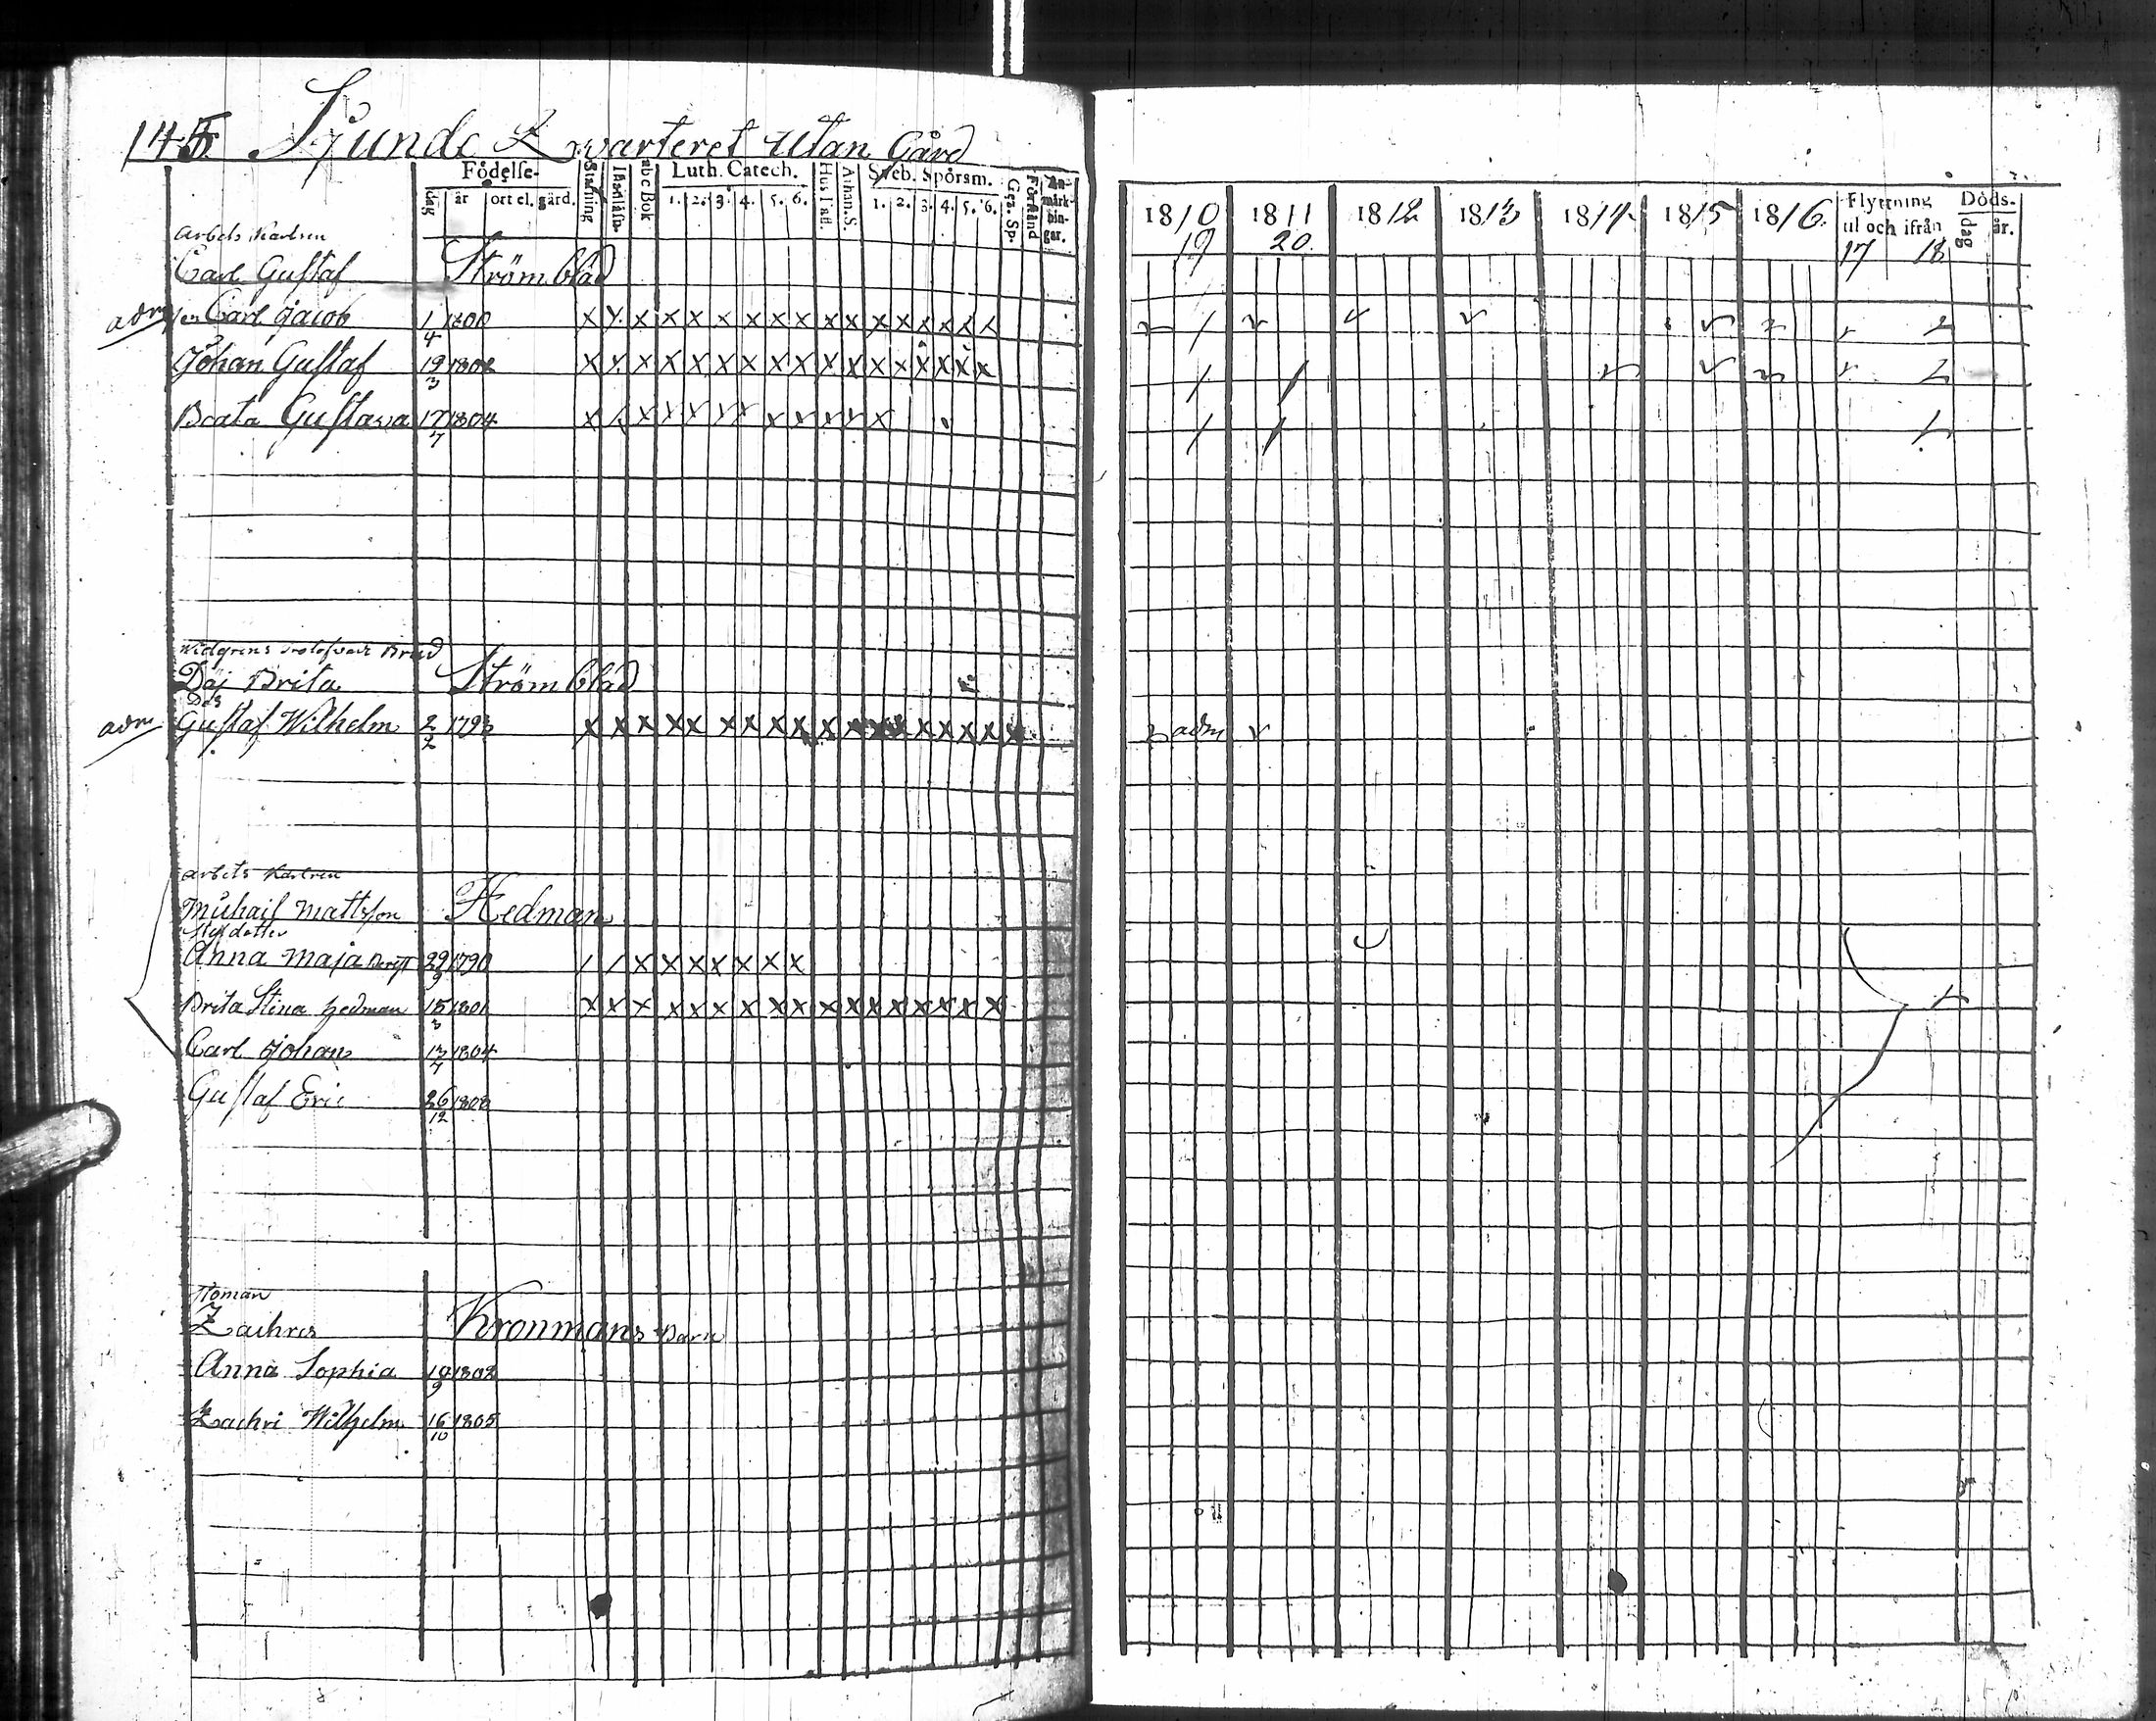 145. Sjunde Qwarteret utan Gård
Födelse- Stafning Luth. Catech. Sveb. Spörsm.
dag år ort el. gård. abc Bok 1. 2. 3. 4. 5. 6. Athan. S. 1. 2. 3. 4. 5. 6. Gez. Sp. Förstånd An- märk- nin- gar.
1810 1811 1812 1813 1814 1815 1816. Flyttning til och ifrån Döds- dag år.
19 20 17 18
Arbets Karlsen
Carl Gustaf Strömblad
adm Carl Jacob 1/4 1800 x x x x x x x x x x x x x x x x x
Johan Gustaf 19/3 1802 x x x x x x x x x x x x x x x x x
Beata Gustava 17/7 1804 x x x x x x x x x x x x
Brud
Brita Strömblad
Des
adm Gustaf Wilhelm 2/2 1793 x x x x x x x x x x x x x x x x x x adm
Arbets Karlsen
Michail Mattsson Hedman
Styfdotter
Anna Maja 29/9 1790 / / x x x x x x x
Brita Stina Hedman 15/3 1801 x x x x x x x x x x x x x x x x x
Carl Johan 13/7 1804
Gustaf Eric 26/12 1808
Zachris Kronmans Barn
Anna Sophia 19/9 1802
Zachri Wilhelm 16/10 1805